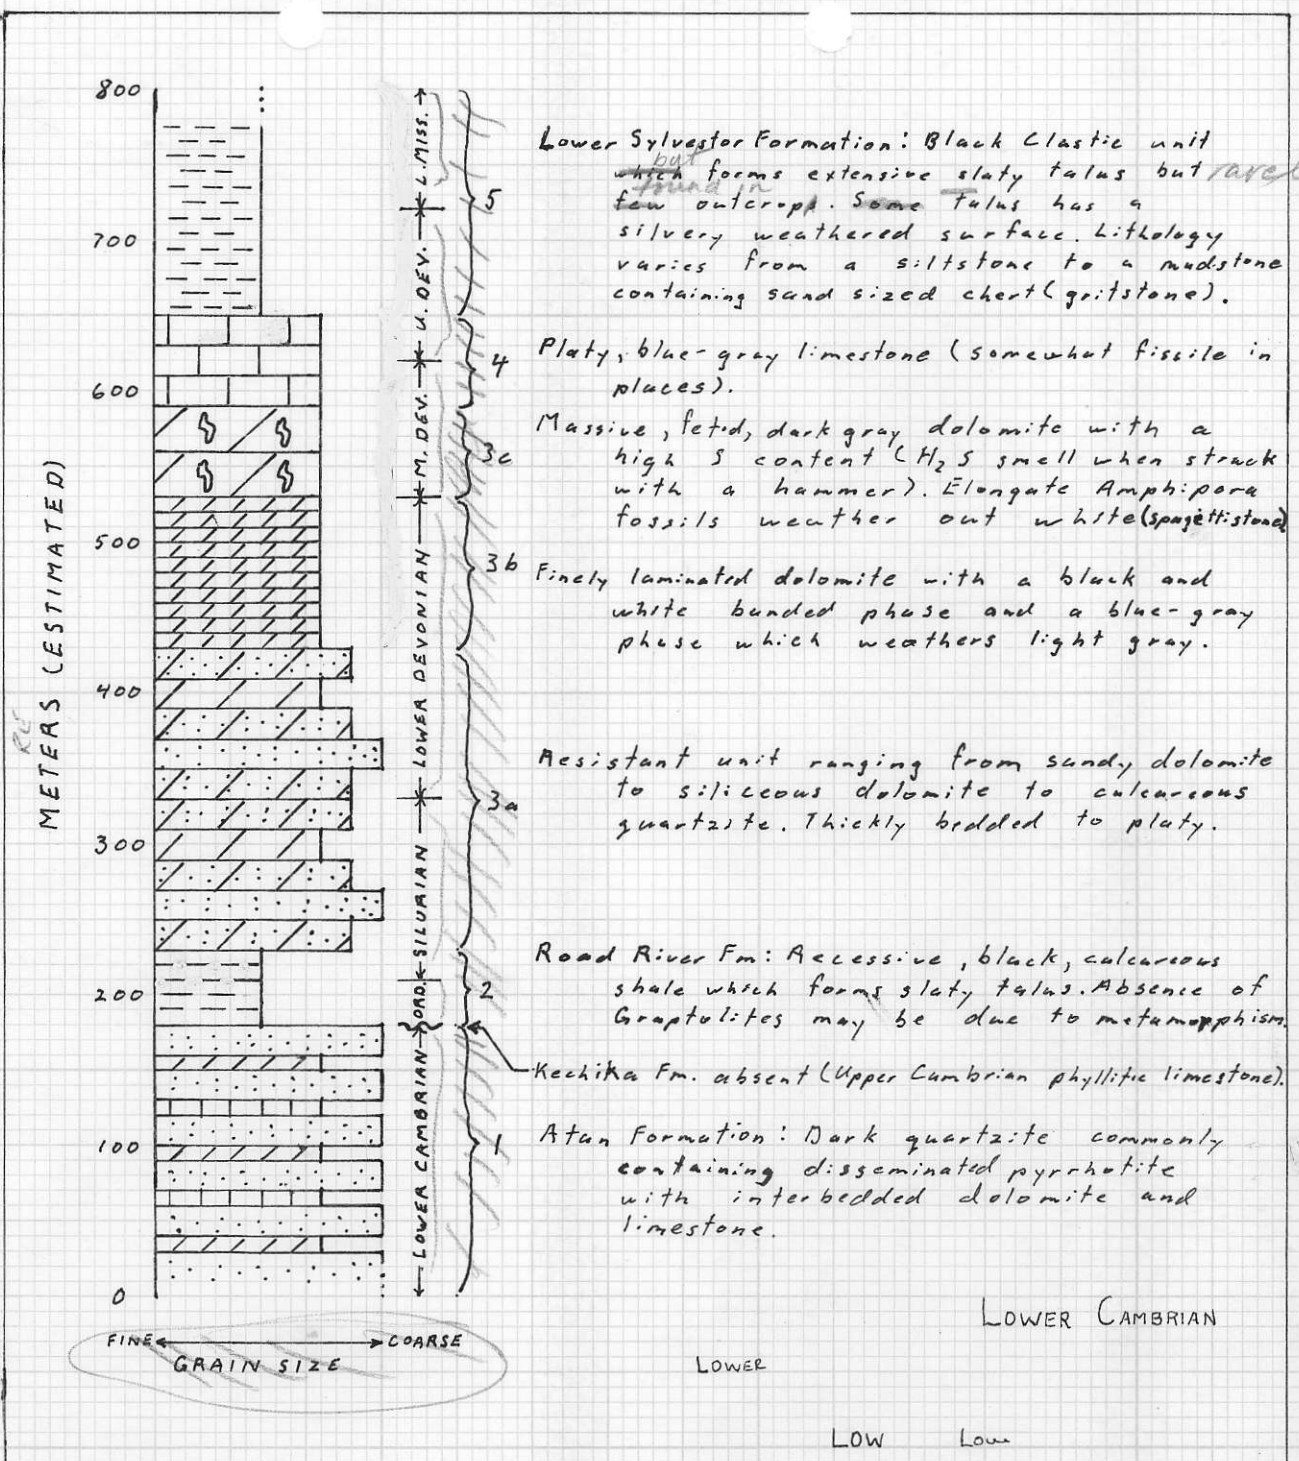 800
700
600
500
400
300
200
100
0
METERS (ESTIMATED)
FINE COARSE
GRAIN SIZE
L. MISS.
U. DEV.
M. DEV.
LOWER DEVONIAN
SILURIAN
ORD.
LOWER CAMBRIAN
5
4
3c
3b
3a
2
1
Lower Sylvestor Formation: Black Clastic unit
but
which forms extensive slaty talus but
found in
few outcrops. Some talus has a
silvery weathered surface. Lithology
varies from a siltstone to a mudstone
containing sand sized chert (gritstone).
Platy, blue-gray limestone (somewhat fissile in
places).
Massive, fetid, dark gray dolomite with a
high S content (H2S smell when struck
with a hammer). Elongate Amphipora
fossils weather out white (spagettistone)
Finely laminated dolomite with a black and
white banded phase and a blue-gray
phase which weathers light gray.
Resistant unit ranging from sandy dolomite
to siliceous dolomite to calcareous
quartzite. Thickly bedded to platy.
Road River Fm: Recessive, black, calcareous
shale which forms slaty talus. Absence of
Graptolites may be due to metamorphism.
Kechika Fm. absent (Upper Cambrian phyllitic limestone).
Atan Formation: Dark quartzite commonly
containing disseminated pyrrhotite
with interbedded dolomite and
limestone.
LOWER CAMBRIAN
LOWER
LOW Low